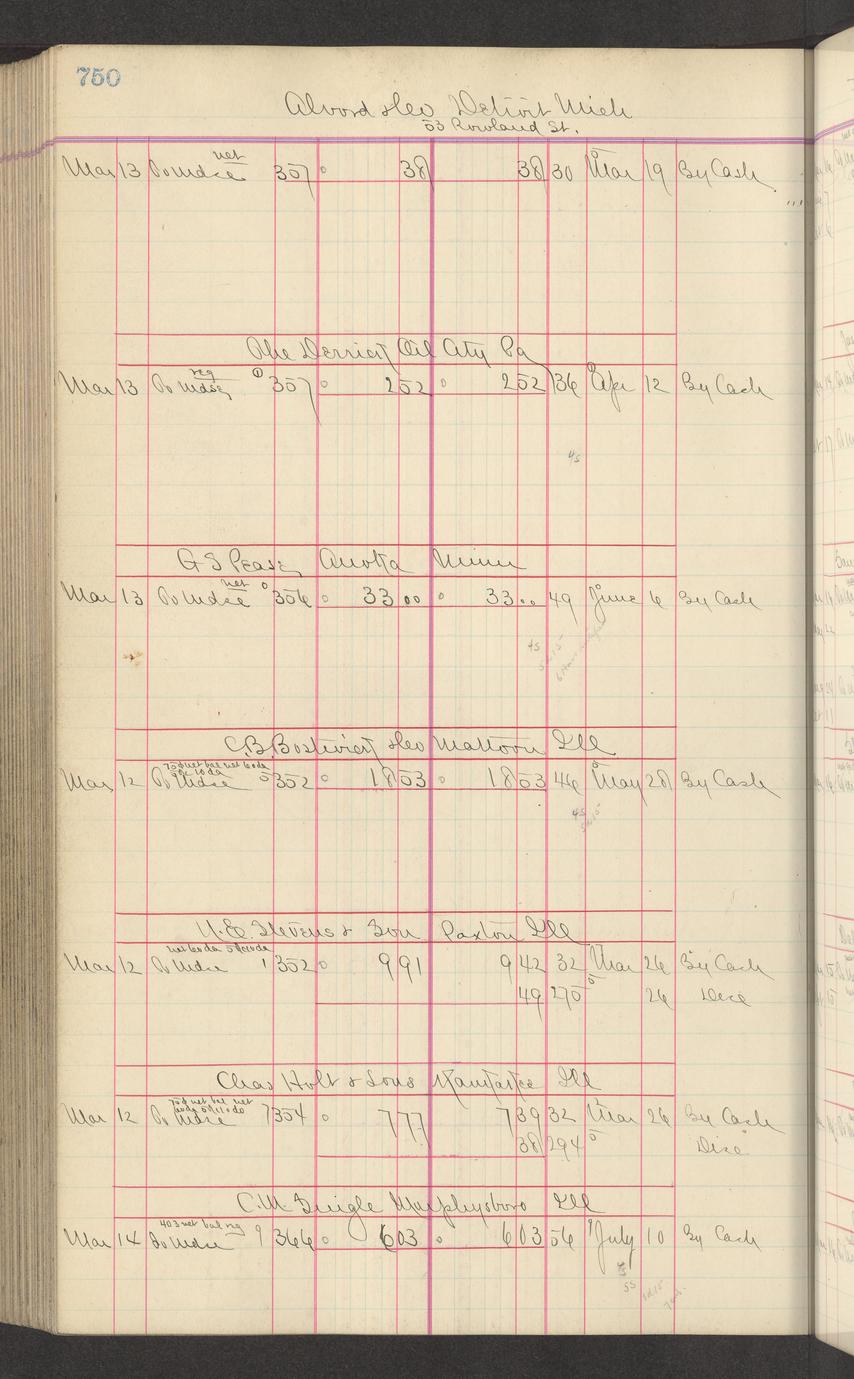 750
Alvord & Co Detroit Mich
53 Rowland St.
net
Mar 13 To Mdse 357 38 38 30 Mar 19 By Cash
The Derrick Oil City Pa
reg
Mar 13 To Mdse 357 2 52 2 52 136 Apr 12 By Cash
45
G S Pease Anoka Minn
net
Mar 13 To Mdse 356 33 00 33 .. 49 June 6 By Cash
45
C.B. Bostwick & Co Mattoon Ill
net bal net 60 da
Mar 12 To Mdse 5 352 18 53 18 53 46 May 28 By Cash
45
U.E. Stevens & Son Paxton Ill
net 60 da 5% 10 da
Mar 12 To Mdse 1 352 9 91 9 42 32 Mar 26 By Cash
49 270 26 Disc
Chas Holt & Sons Kankakee Ill
net bal net
60 da 5% 10 da
Mar 12 To Mdse 7 354 7 77 7 39 32 Mar 26 By Cash
38 294 Disc
C.M. Murphysboro Ill
403 net bal reg
Mar 14 To Mdse 9 366 6 03 6 03 56 July 10 By Cash
55